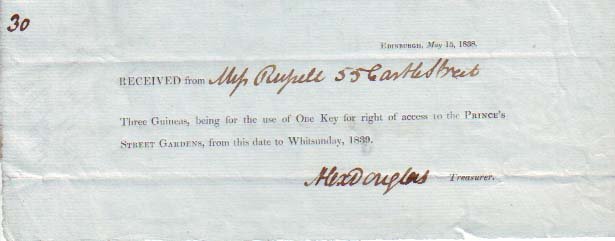 30
EDINBURGH, May 15, 1838.
RECEIVED from Miss Russell 55 Castle Street
Three Guineas, being for the use of One Key for right of access to the PRINCE'S
STREET GARDENS, from this date to Whitsunday, 1839.
Alex Douglas Treasurer.